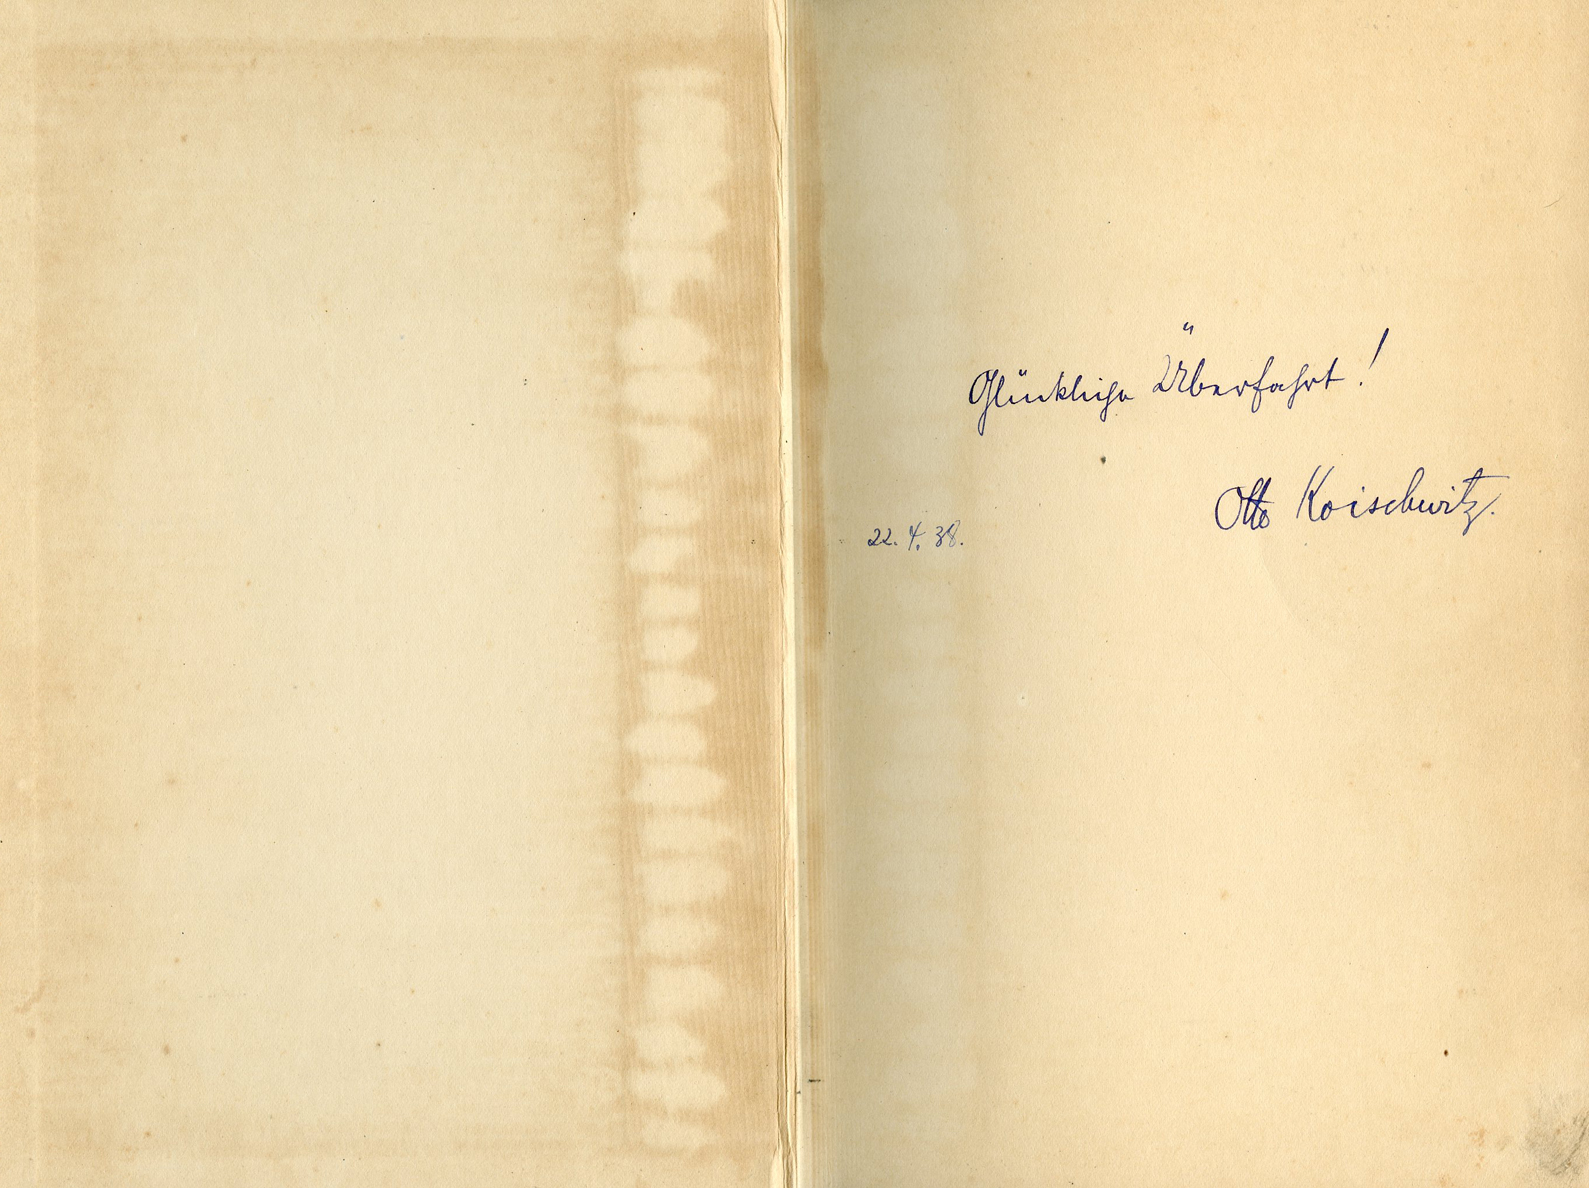 Glückliche Überfahrt!
Otto Koischwitz.
22. 4. 38.